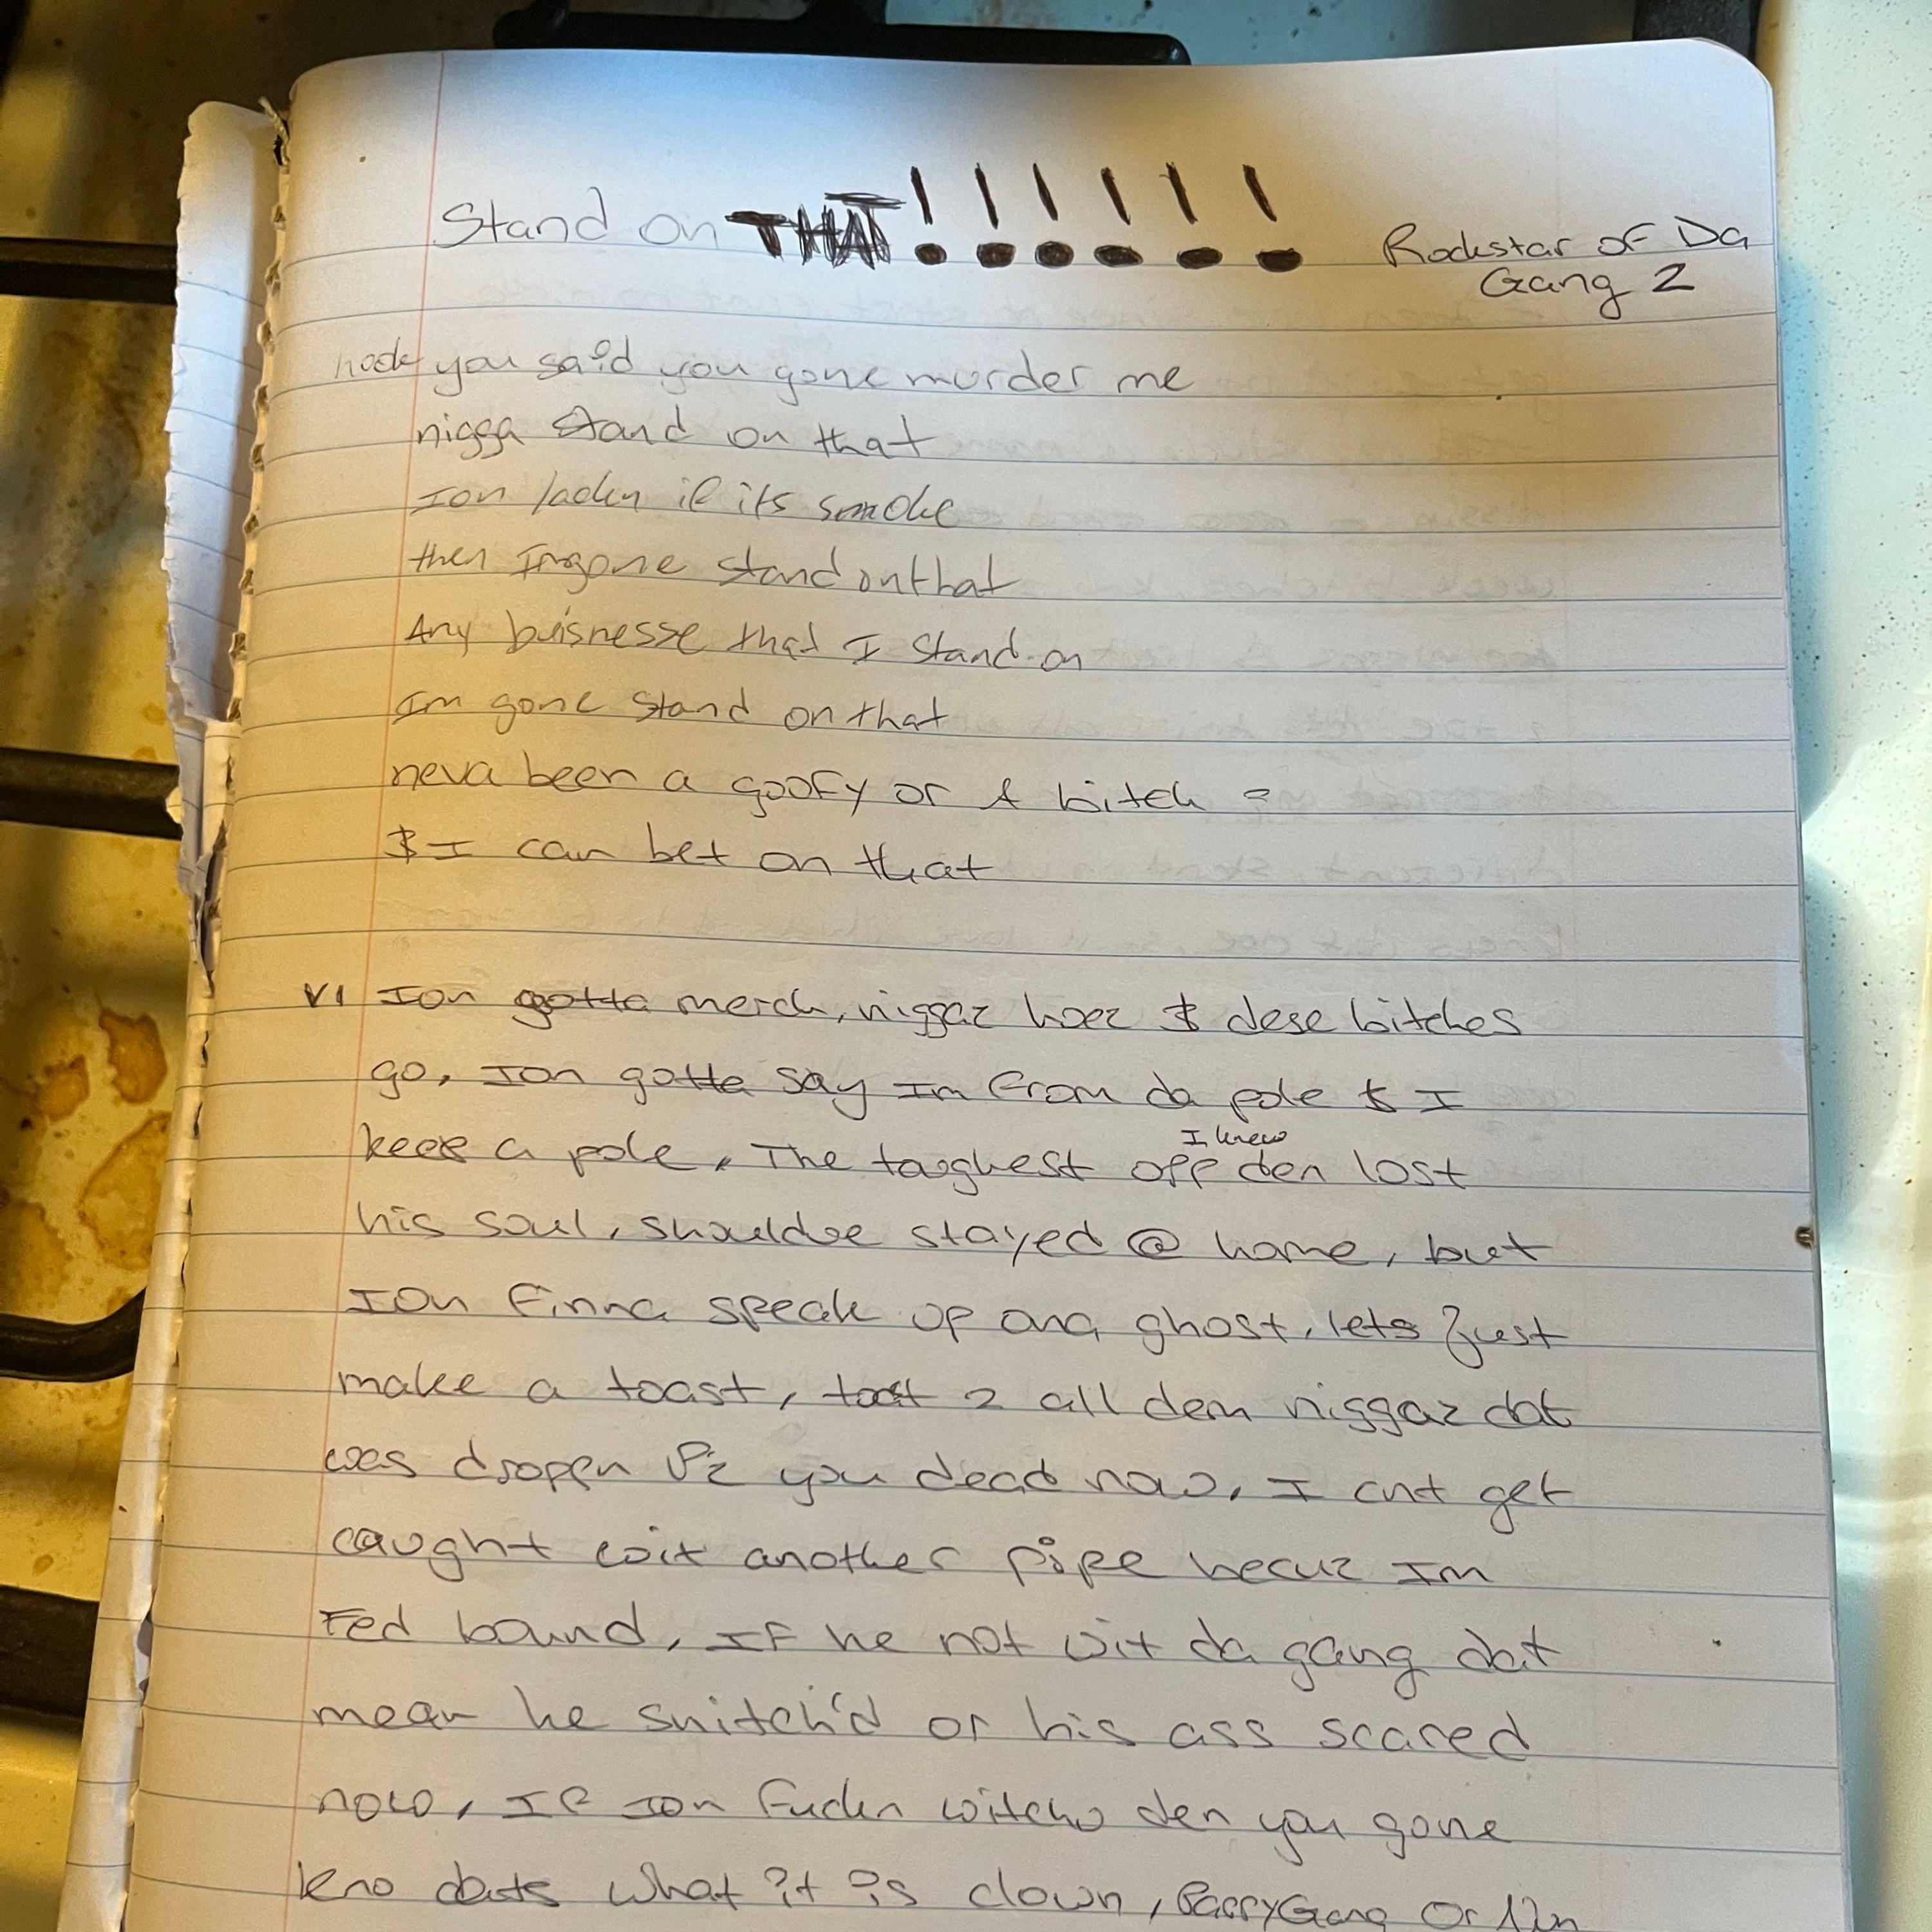 Stand on THAT!!!!!!
Rockstar of Da
Gang 2
hook you said you gone murder me
nigga stand on that
Ion lackn if its smoke
then Imgone stand on that
Any buisnesse that I stand on
Im gone stand on that
neva been a goofy or A bitch
$ I can bet on that
V1 Ion gotta merch, niggaz hoez $ dese bitches
go, Ion gotta say Im from da pole $ I
keep a pole, The toughest opp I knew den lost
his soul, shouldve stayed @ home, but
Ion finna speak up ona ghost, lets just
make a toast, toast 2 all dem niggaz dat
was droppn Pz you dead now, I cnt get
caught wit another pipe becuz Im
Fed bound, If he not wit da gang dat
mean he snitch'd or his ass scared
now, If Ion fuckn witchu den you gone
kno dats what it is clown, Gang or